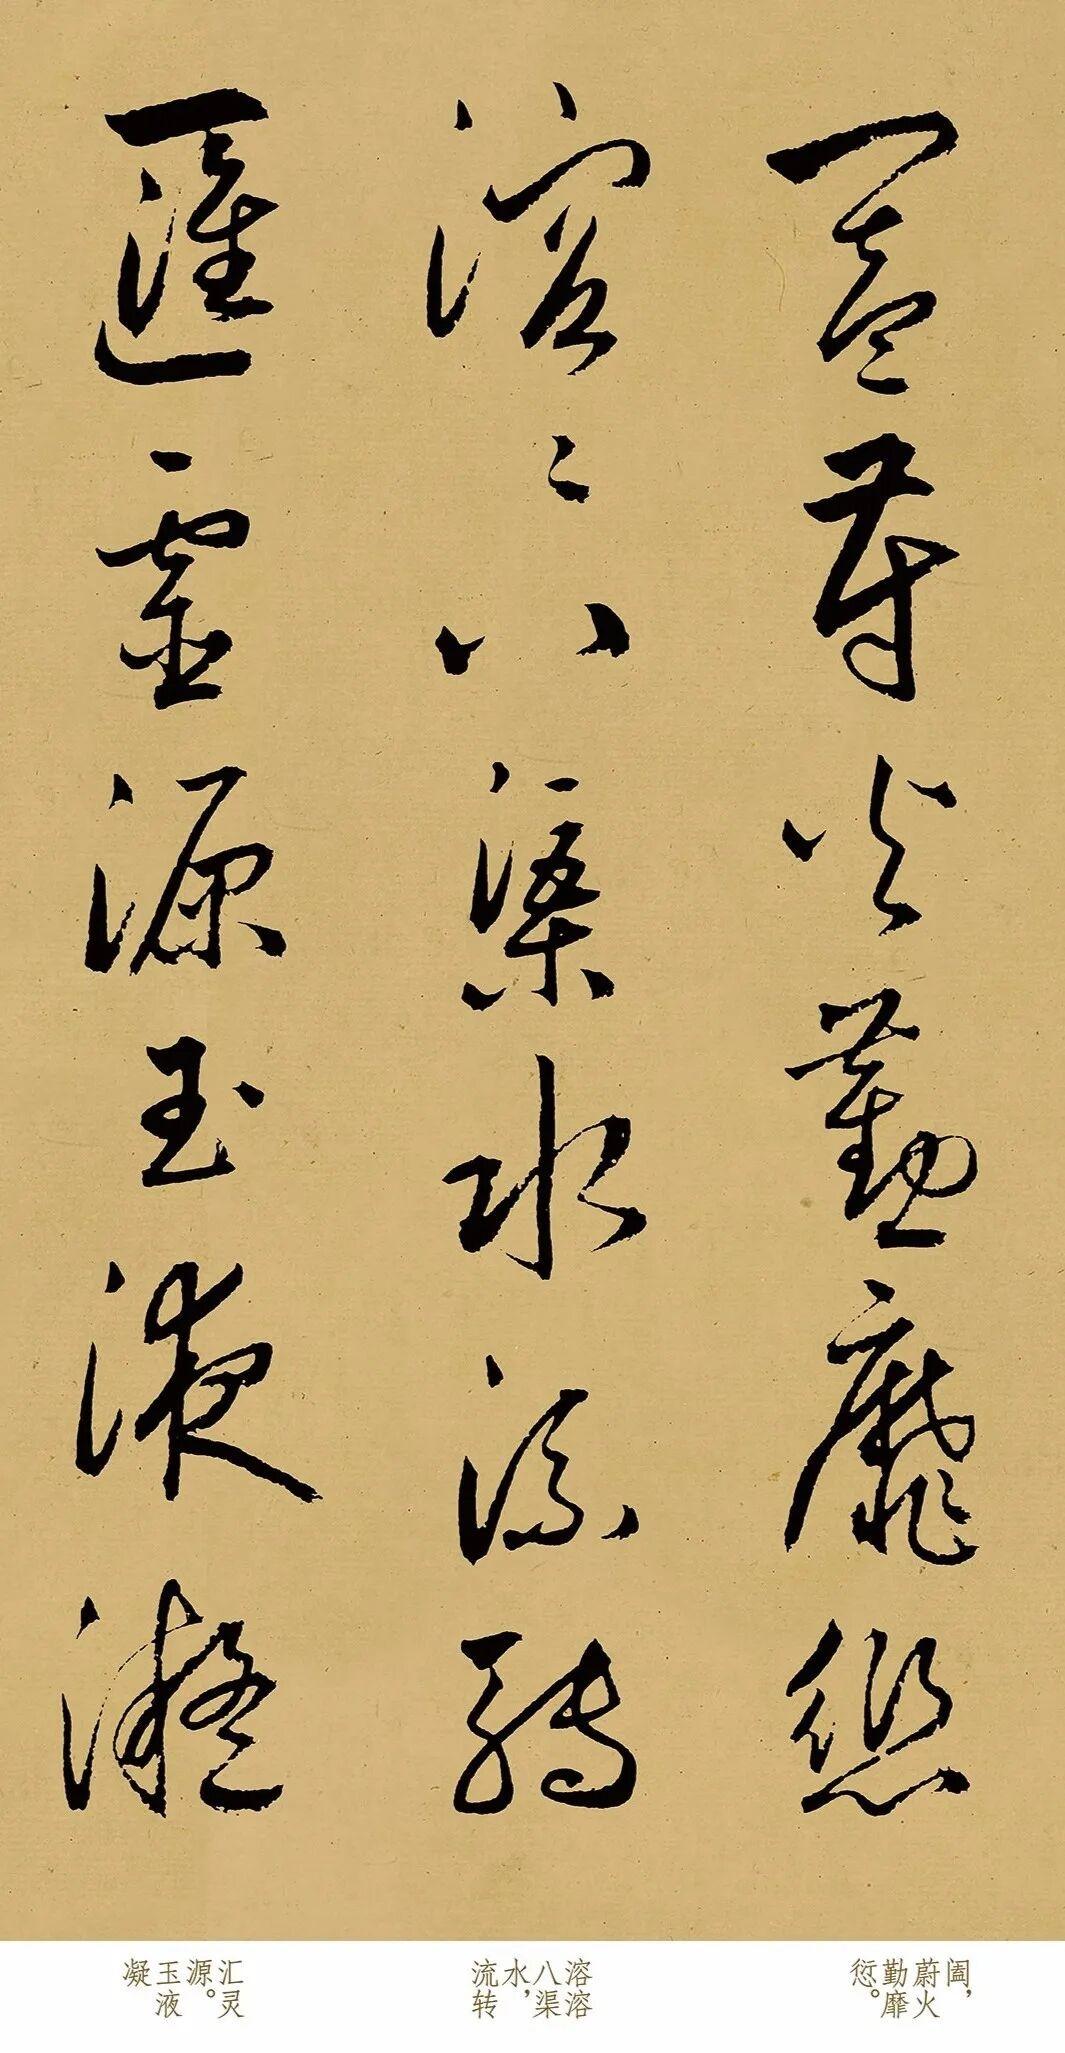 蔚火勤靡愆
溶溶八渠水流转
匯灵源玉液凝
阖，
蔚火
勤靡
愆。
溶溶
八渠
水，
流转
汇灵
源。
玉液
凝